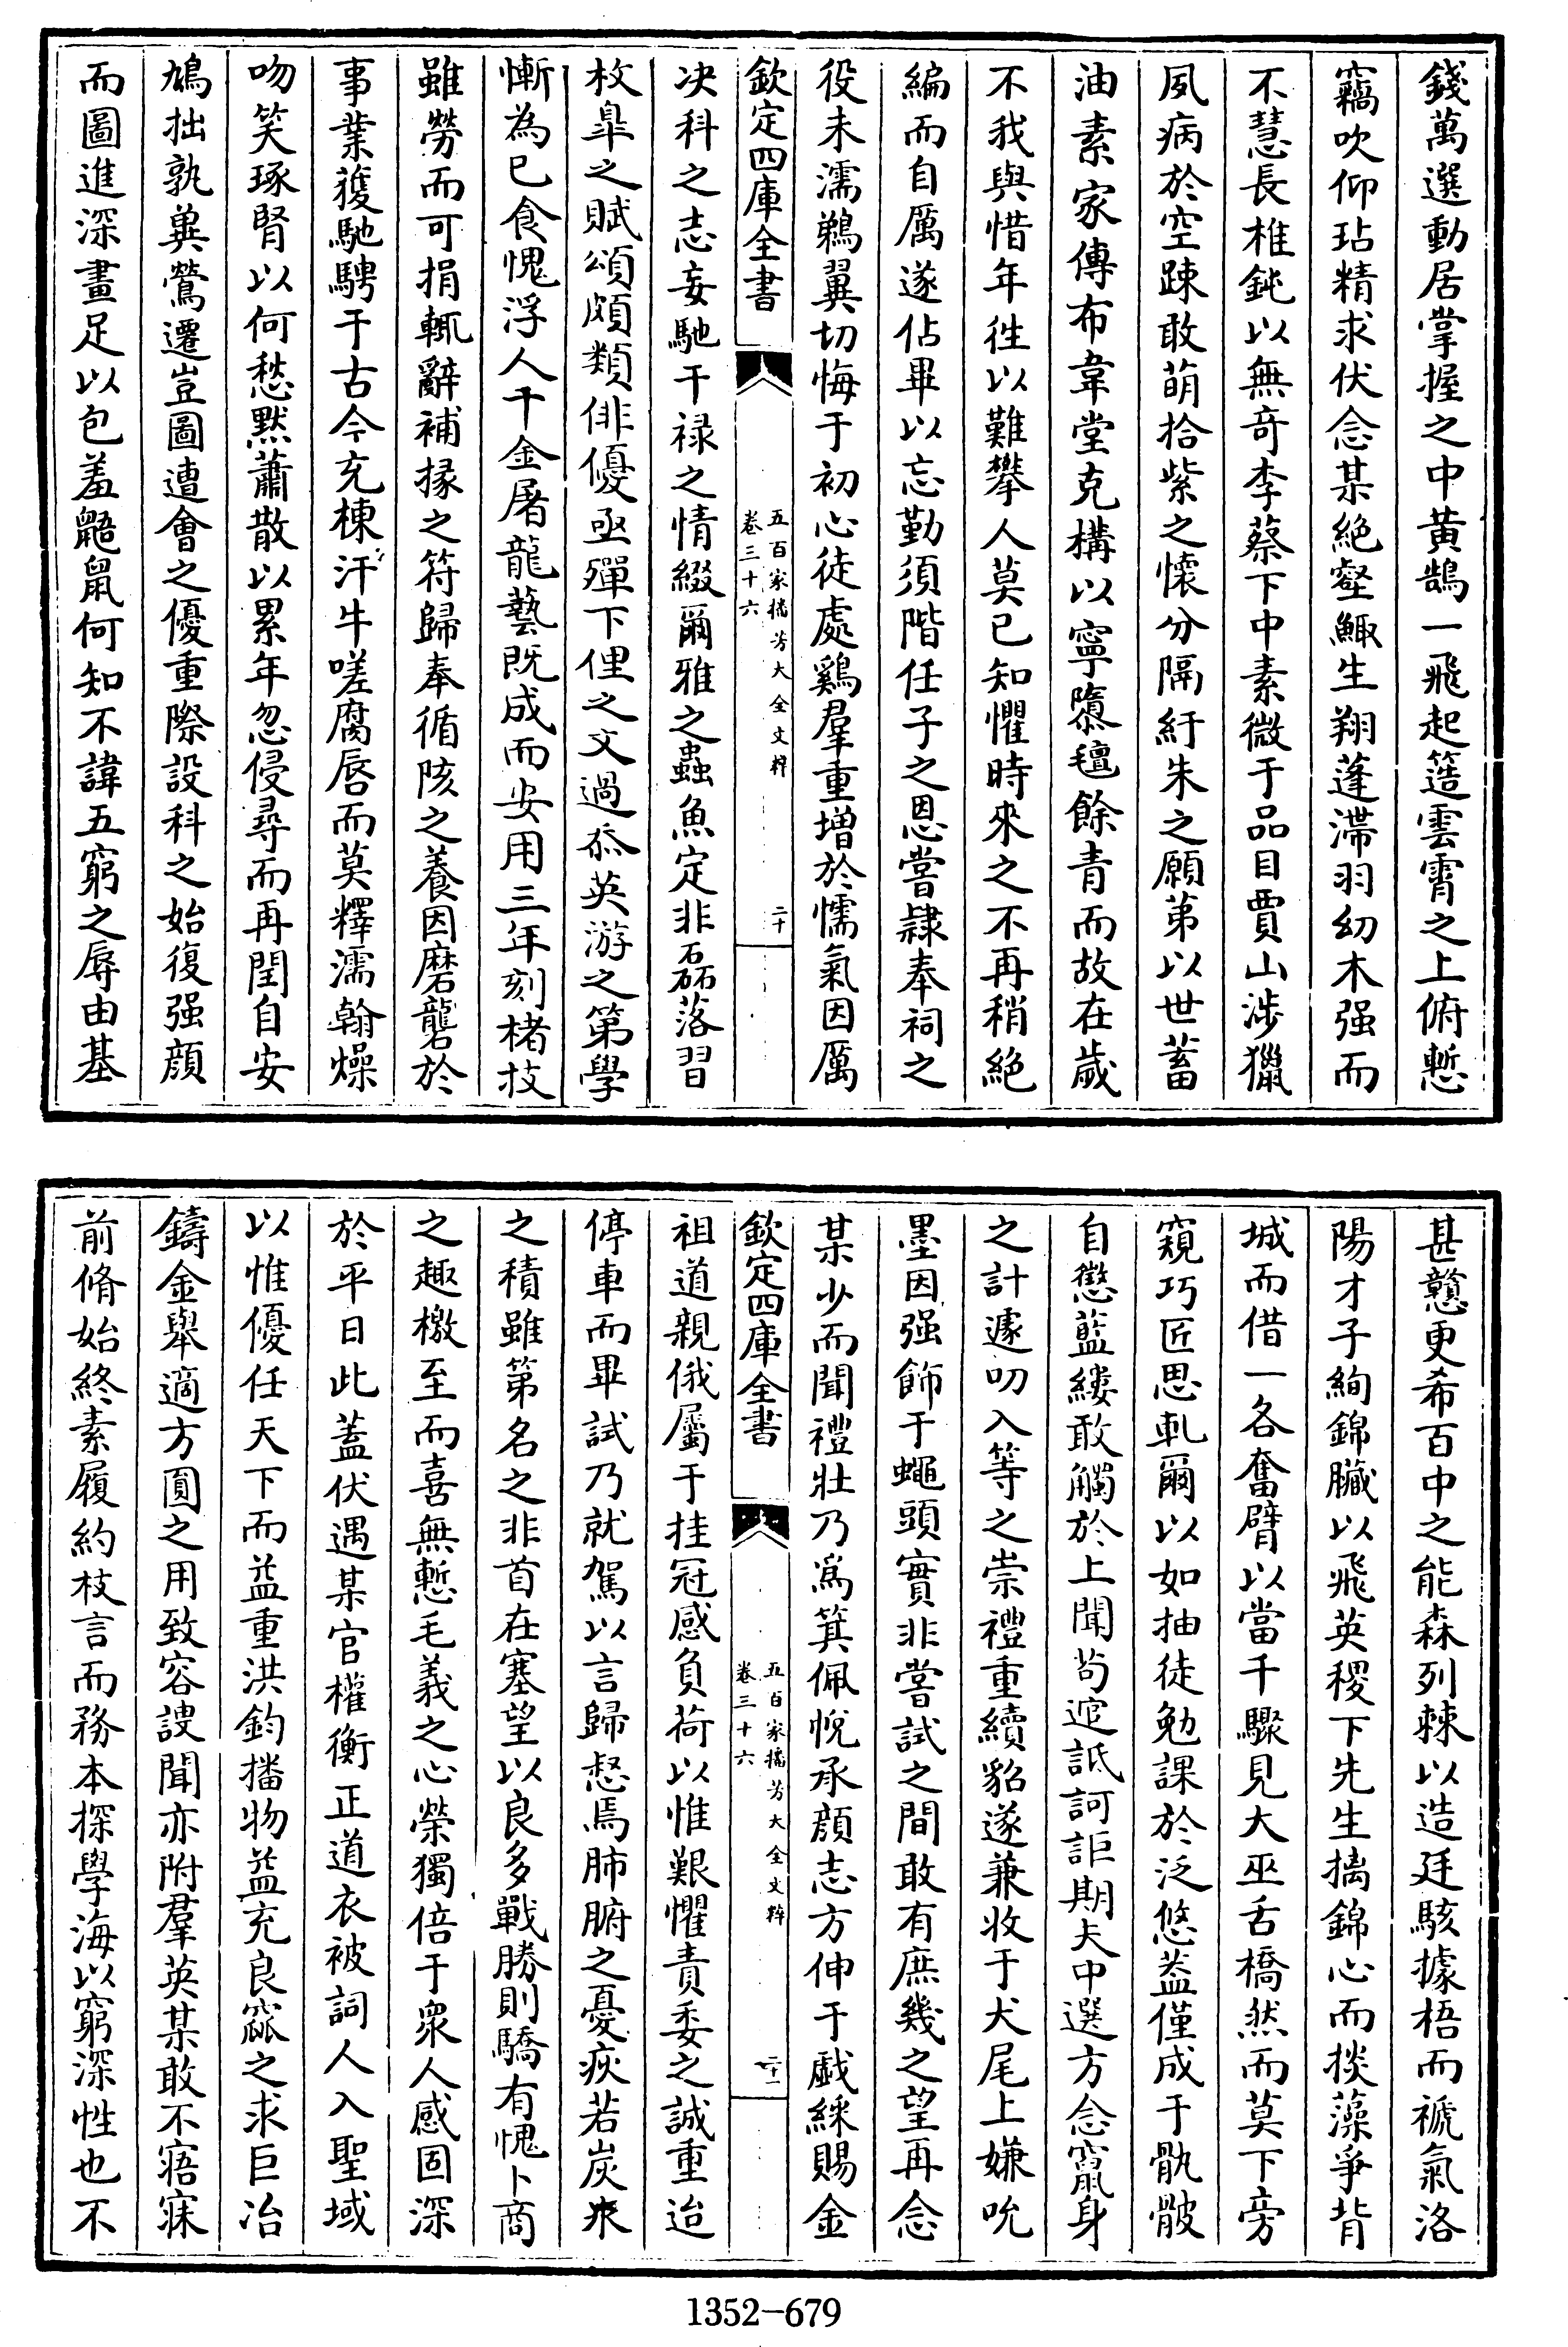 錢萬選動居掌握之中黄鵠一飛起簉雲霄之上俯慙
竊吹仰玷精求伏念某絶壑鯫生翔蓬滯羽幼木强而
不慧長椎鈍以無奇李蔡下中素微于品目賈山涉獵
夙病於空踈敢萌拾紫之懷分隔紆朱之願第以世蓄
油素家傳布韋堂克構以寧隳氊餘青而故在歲
不我與惜年徃以難攀人莫已知懼時來之不再稍絶
編而自厲遂佔畢以忘勤須階任子之恩嘗隷奉祠之
役未濡鵜翼切悔于初心徒處鷄羣重増於懦氣因厲
欽定四庫全書
五百家播芳大全文粹
卷三十六
二十
决科之志妄馳干禄之情綴爾雅之蟲魚定非磊落習
枚臯之賦頌頗類俳優亟殫下俚之文過忝英游之第學
慚為已食愧浮人千金屠龍藝既成而安用三年刻楮技
雖勞而可捐輒辭補掾之符歸奉循陔之養因磨礱於
事業獲馳騁于古今充棟汗牛嗟腐唇而莫釋濡翰燥
吻笑琢腎以何愁黙蕭散以累年忽侵尋而再閏自安
鳩拙孰兾鶯遷豈圖遭㑹之優重際設科之始復强顔
而圖進深畫足以包羞鼯鼠何知不諱五窮之辱由基
甚戇更希百中之能森列棘以造廷駭據梧而禠氣洛
陽才子絢錦臟以飛英稷下先生摛錦心而掞藻爭背
城而借一各奮臂以當千驟見大巫舌橋然而莫下旁
窺巧匠思軋爾以如抽徒勉課於泛悠葢僅成于骫骳
自懲藍縷敢觸於上聞茍逭詆訶詎期夫中選方念竄身
之計遽叨入等之崇禮重續貂遂兼收于犬尾上嫌吮
墨因强飾于蠅頭實非嘗試之間敢有庶幾之望再念
某少而聞禮壯乃為箕佩悅承顔志方伸于戯綵賜金
欽定四庫全書
五百家播芳大全文粹
卷三十六
二十一
祖道親俄屬于挂冠感負荷以惟艱懼責委之誠重迨
停車而畢試乃就駕以言歸惄焉肺腑之憂疢若炭氷
之積雖第名之非首在塞望以良多戰勝則驕有愧卜商
之趣檄至而喜無慙毛義之心榮獨倍于衆人感固深
於平日此蓋伏遇某官權衡正道衣被詞人入聖域
以惟優任天下而益重洪鈞播物益充良窳之求巨冶
鑄金舉適方圓之用致容謏聞亦附羣英某敢不寤寐
前脩始終素履約枝言而務本探學海以窮深性也不
1352-679